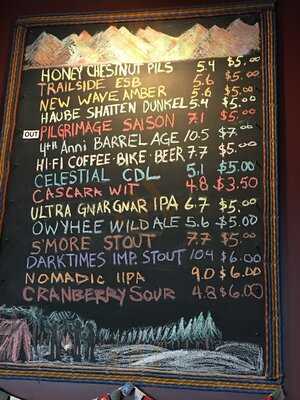 HONEY CHESTNUT PILS 5.4 $5.00
TRAILSIDE ESB 5.6 $5.00
NEW WAVE AMBER 5.6 $5.00
HAUBE SHATTEN DUNKEL 5.4 $5.00
OUT PILGRIMAGE SAISON 7.1 $5.00
4TH Anni BARREL AGE 10.5 $7.00
HI·FI COFFEE·BIKE·BEER 7.7 $5.00
CELESTIAL CDL 5.1 $5.00
CASCARA WIT 4.8 $3.50
ULTRA GNAR GNAR IPA 6.7 $5.00
OWYHEE WILD ALE 5.6 $5.00
S'MORE STOUT 7.7 $5.00
DARKTIMES IMP. STOUT 10.4 $6.00
NOMADIC IIPA 9.0 $6.00
CRANBERRY SOUR 4.8 $6.00